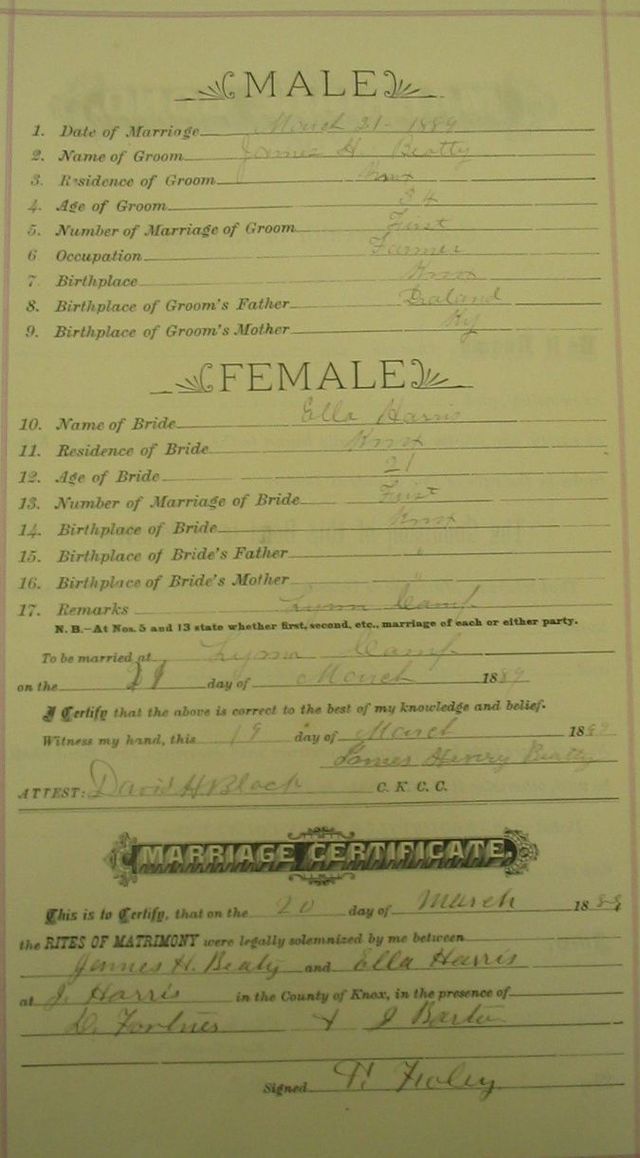 MALE
1. Date of Marriage March 21 - 1889
2. Name of Groom James H Beatty
3. Residence of Groom Knox
4. Age of Groom 34
5. Number of Marriage of Groom First
6 Occupation Farmer
7 Birthplace Knox
8. Birthplace of Groom's Father
9. Birthplace of Groom's Mother Ky
FEMALE
10. Name of Bride Ella Harris
11. Residence of Bride Knox
12. Age of Bride 21
13. Number of Marriage of Bride First
14. Birthplace of Bride Knox
15. Birthplace of Bride's Father "
16. Birthplace of Bride's Mother "
17. Remarks Lynn Camp
N. B.—At Nos. 5 and 13 state whether first, second, etc., marriage of each or either party.
To be married at Lynn Camp
on the 21 day of March 1889
I Certify that the above is correct to the best of my knowledge and belief.
Witness my hand, this 19 day of March 1889
James Henry Beatty
ATTEST: David H Black C. K. C. C.
MARRIAGE CERTIFICATE
This is to Certify, that on the 20 day of March 1889
the RITES OF MATRIMONY were legally solemnized by me between
James H. Beaty and Ella Harris
at J. Harris in the County of Knox, in the presence of
D. Fortner & J Barton
Signed T. Foley